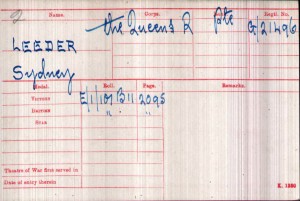 Name. Corps. Rank. Regtl. No.
LEEDER the Queens R Pte G/21496
Sydney
Medal. Roll. Page. Remarks.
VICTORY E/1/107 B11 2095
BRITISH " " "
STAR
Theatre of War first served in
Date of entry therein
K. 1380